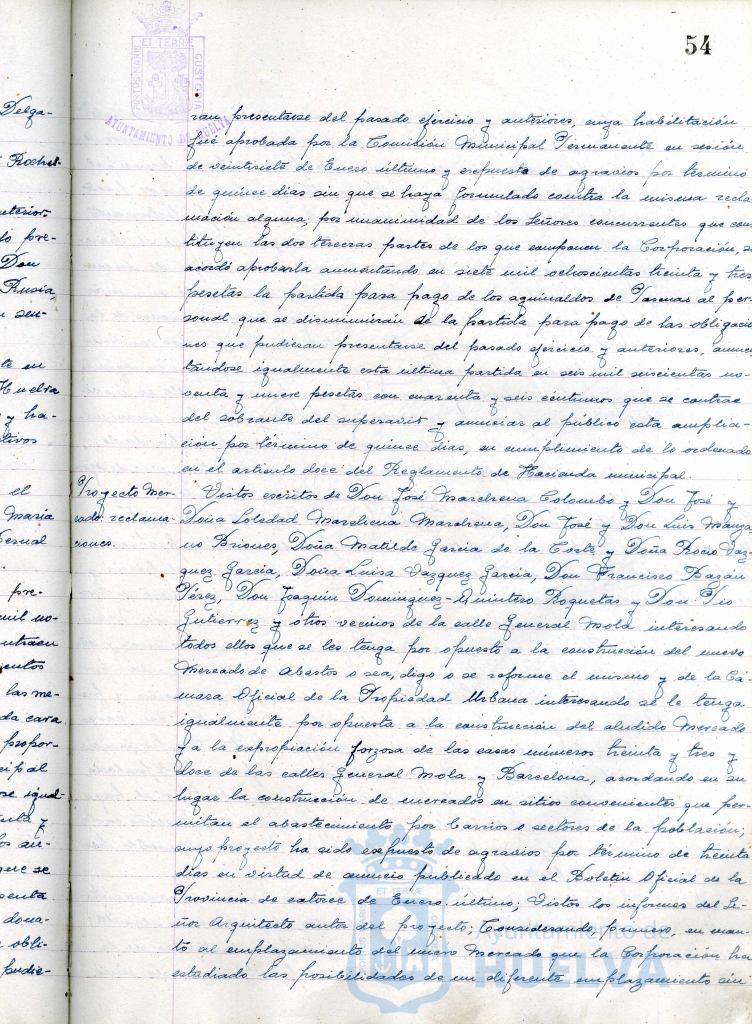 54
PORTUS MARIS ET TERRAE CUSTODIA
AYUNTAMIENTO DE HUELVA
Delga-
Rochel
anterior-
do pre-
Don
Rusia,
n sen-
te en
Huelva
y ha-
tivos
el
Maria
Sexual
pre-
mil no-
ntraen
ientos
las me-
da cara
propor-
cipal
ose igual-
nta y
os au-
que se
senta
dona-
obli-
pudie-
ran presentarse del pasado ejercicio y anteriores, cuya habilitación
fué aprobada por la Comisión Municipal Permanente en sesión
de veintisiete de Enero último y expuesta de agravios por término
de quince dias sin que se haya formulado contra la misma recla-
mación alguna, por unanimidad de los Señores concurrentes que cons
tituyen las dos terceras partes de los que componen la Corporación, se
acordó aprobarla aumentando en siete mil ochocientas treinta y tres
pesetas la partida para pago de los aguinaldos de Pascuas al per-
sonal que se disminuirán de la partida para pago de las obligacio
nes que pudieran presentarse del pasado ejercicio y anteriores, aumen
tándose igualmente esta última partida en seis mil seiscientas no-
venta y nueve pesetas con cuarenta y seis céntimos que se contrae
del sobrante del superavit y anunciar al público esta amplia-
ción por término de quince dias, en cumplimiento de lo ordenado
en el articulo doce del Reglamento de Hacienda municipal.
Proyecto Mer-
cado reclama-
ciones.
Vistos escritos de Don José Marchena Colombo y Don José y
Doña Soledad Marchena Marchena, Don José y Don Luis Manza
no Briones, Doña Matilde Garcia de la Corte y Doña Rocio Vaz-
quez Garcia, Doña Luisa Vazquez Garcia, Don Francisco Bazán
Pérez, Don Joaquin Dominguez-Quintero Roquetas y Don Pio
Gutierrez y otros vecinos de la calle General Mola interesando
todos ellos que se les tenga por opuesto a la construcción del nuevo
Mercado de Abastos o sea, digo o se reforme el mismo y de la Cá-
mara Oficial de la Propiedad Urbana interesando se le tenga
igualmente por opuesta a la construcción del aludido Mercado
y a la expropiación forzosa de las casas números treinta y tres y
doce de las calles General Mola y Barcelona, acordando en su
lugar la construcción de mercados en sitios convenientes que per-
mitan el abastecimiento por barrios o sectores de la población;
cuyo proyecto ha sido expuesto de agravios por término de treinta
dias en virtud de anuncio publicado en el Boletin Oficial de la
Provincia de catorce de Enero último; Vistos los informes del Se-
ñor Arquitecto autor del proyecto; Considerando, primero, en cuan-
to al emplazamiento del nuevo Mercado que la Corporación ha
estudiado las posibilidades de un diferente emplazamiento sin
Ayuntamiento de
HUELVA